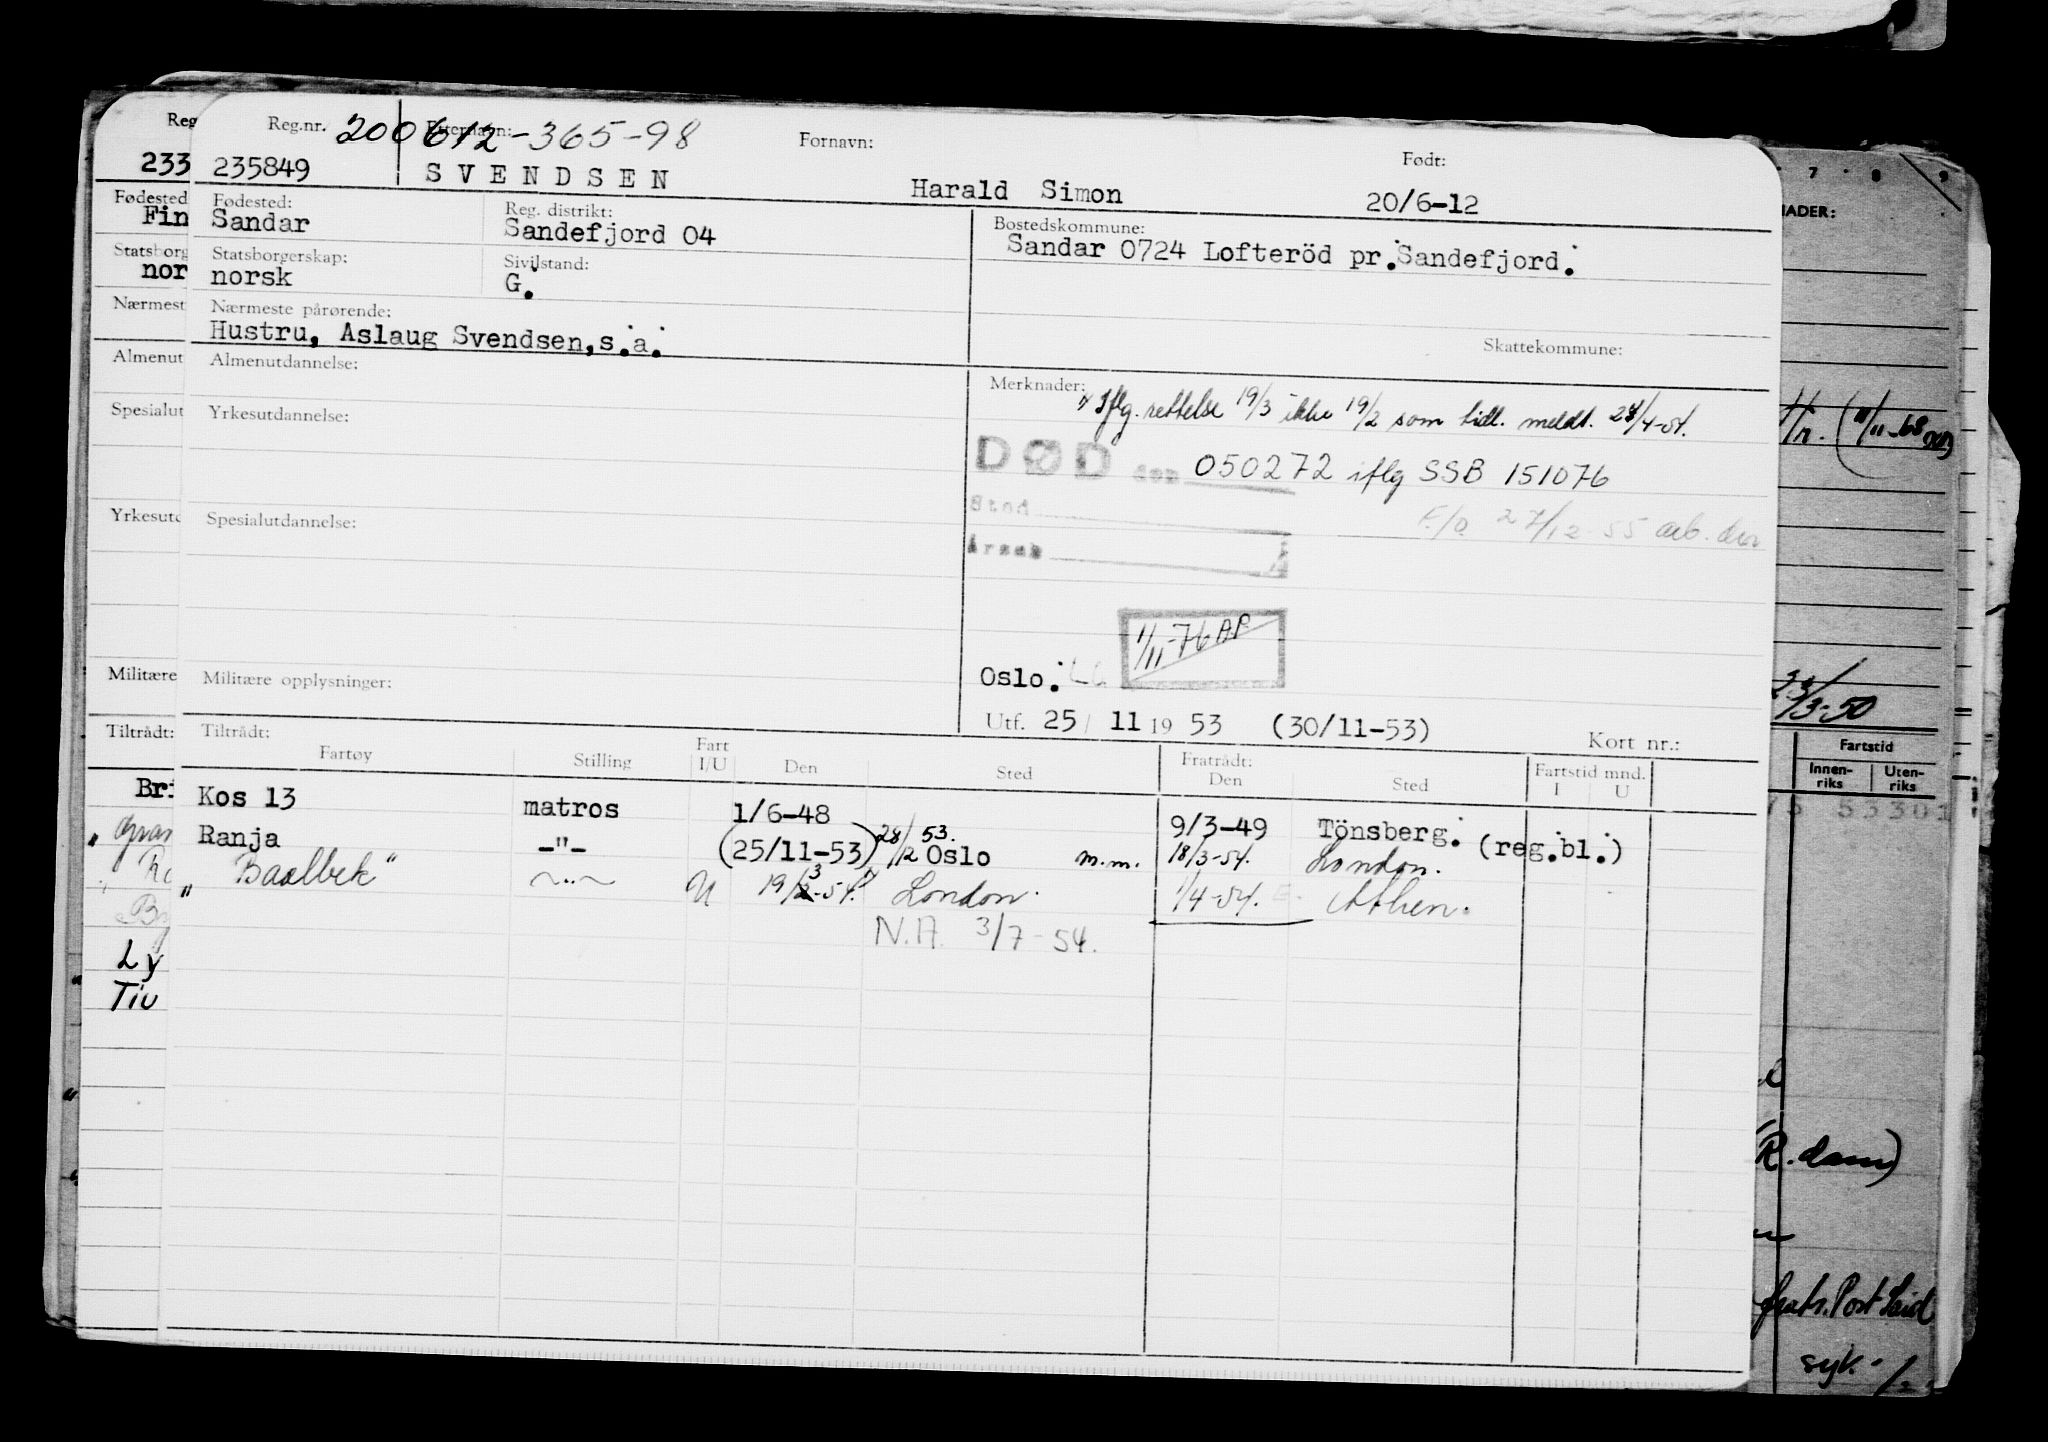 Reg.nr. 200612-365-98 Etternavn: Fornavn: Født:
235849 SVENDSEN Harald Simon 20/6-12
Fødested: Reg. distrikt: Bostedskommune:
Sandar Sandefjord 04 Sandar 0724 Lofteröd pr. Sandefjord.
Statsborgerskap: Sivilstand:
norsk G.
Nærmeste pårørende:
Hustru, Aslaug Svendsen, s.a.
Skattekommune:
Almenutdannelse:
Merknader:
1) Iflg. rettelse 19/3 ikke 19/2 som tidl. meldt. 28/4-54.
Yrkesutdannelse:
DØD den 050272 iflg SSB 151076
Sted
27/12-55 arb.
Årsak
Spesialutdannelse:
1/11-76 AP
Militære opplysninger:
Oslo.
Utf. 25/ 11 19 53 (30/11-53)
Kort nr.:
Tiltrådt: Fratrådt:
Fartøy Stilling Fart I/U Den Sted Den Sted Fartstid mnd. I U
Kos 13 matros 1/6-48 9/3-49 Tönsberg. (reg.bl.)
Ranja -"- (25/11-53) 28/12 53. Oslo m.m. 18/3-54. London.
"Baalbek" -"- U 19/3-54. 1) London. 1/4-54. Athen.
N.A. 3/7-54.
Reg
233
Fødested
Fin
Statsborg
nor
Nærmest
Almenut
Spesialut
Yrkesutd
Militære
Tiltrådt:
Bri
Gran
Ra
By
Ly
Tiv
7 8 9
NADER:
(11/11-68
23/3-50
Fartstid
Innen-riks Uten-riks
53301
(R.dam)
fratr. Port Said
syk.